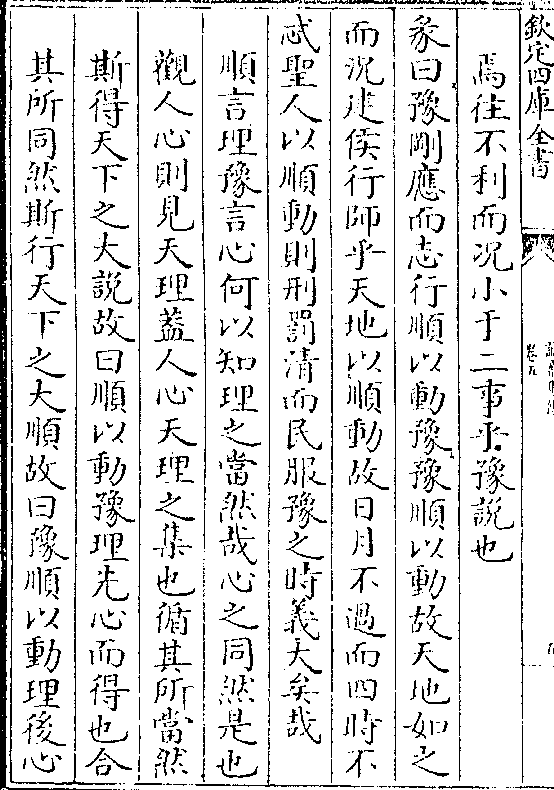 欽定四庫全書
卷五
焉往不利而况小于二事乎豫說也
彖曰豫剛應而志行順以動豫豫順以動故天地如之
而況建侯行師乎天地以順動故日月不過而四時不
忒聖人以順動則刑罰清而民服豫之時義大矣哉
順言理豫言心何以知理之當然哉心之同然是也
觀人心則見天理蓋人心天理之集也循其所當然
斯得天下之大說故曰順以動豫理先心而得也合
其所同然斯行天下之大順故曰豫順以動理後心